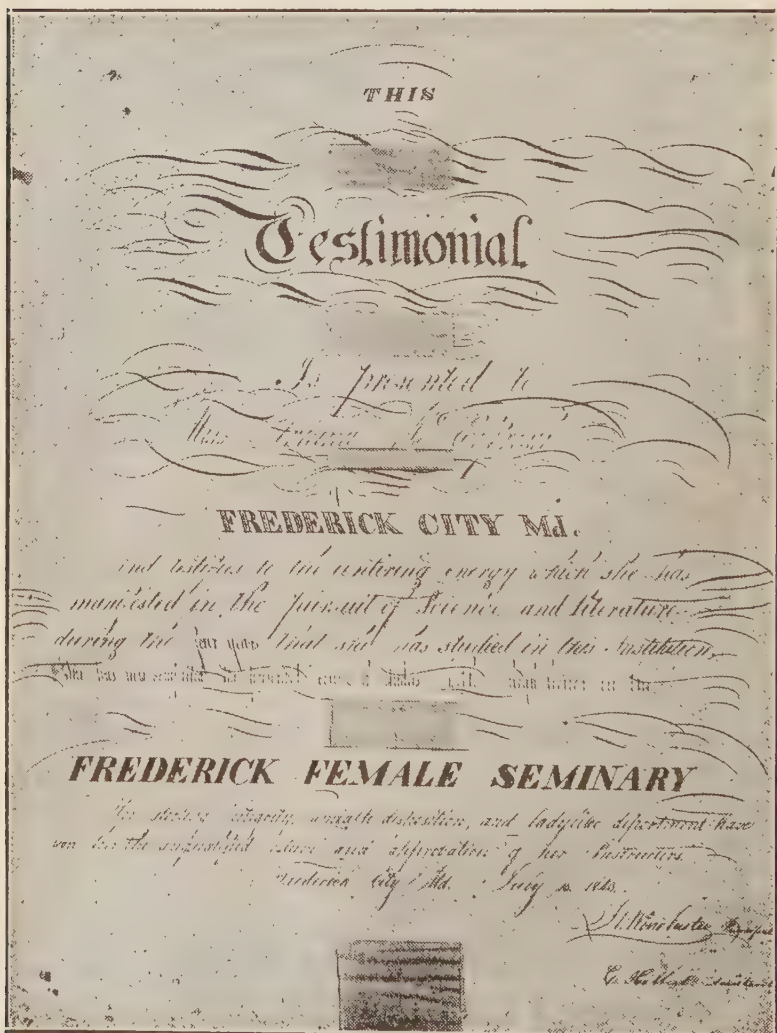 THIS
Testimonial
Is presented to
Miss
FREDERICK CITY Md.
and testifies to the untiring energy which she has
manifested in the pursuit of Science and Literature
during the four years that she has studied in this Institution,
She has now completed the
FREDERICK FEMALE SEMINARY
Her sterling integrity, amiable disposition, and ladylike deportment have
won her the unqualified and approbation of her Instructors.
Frederick City Md. July 1863.
Winchester Principal